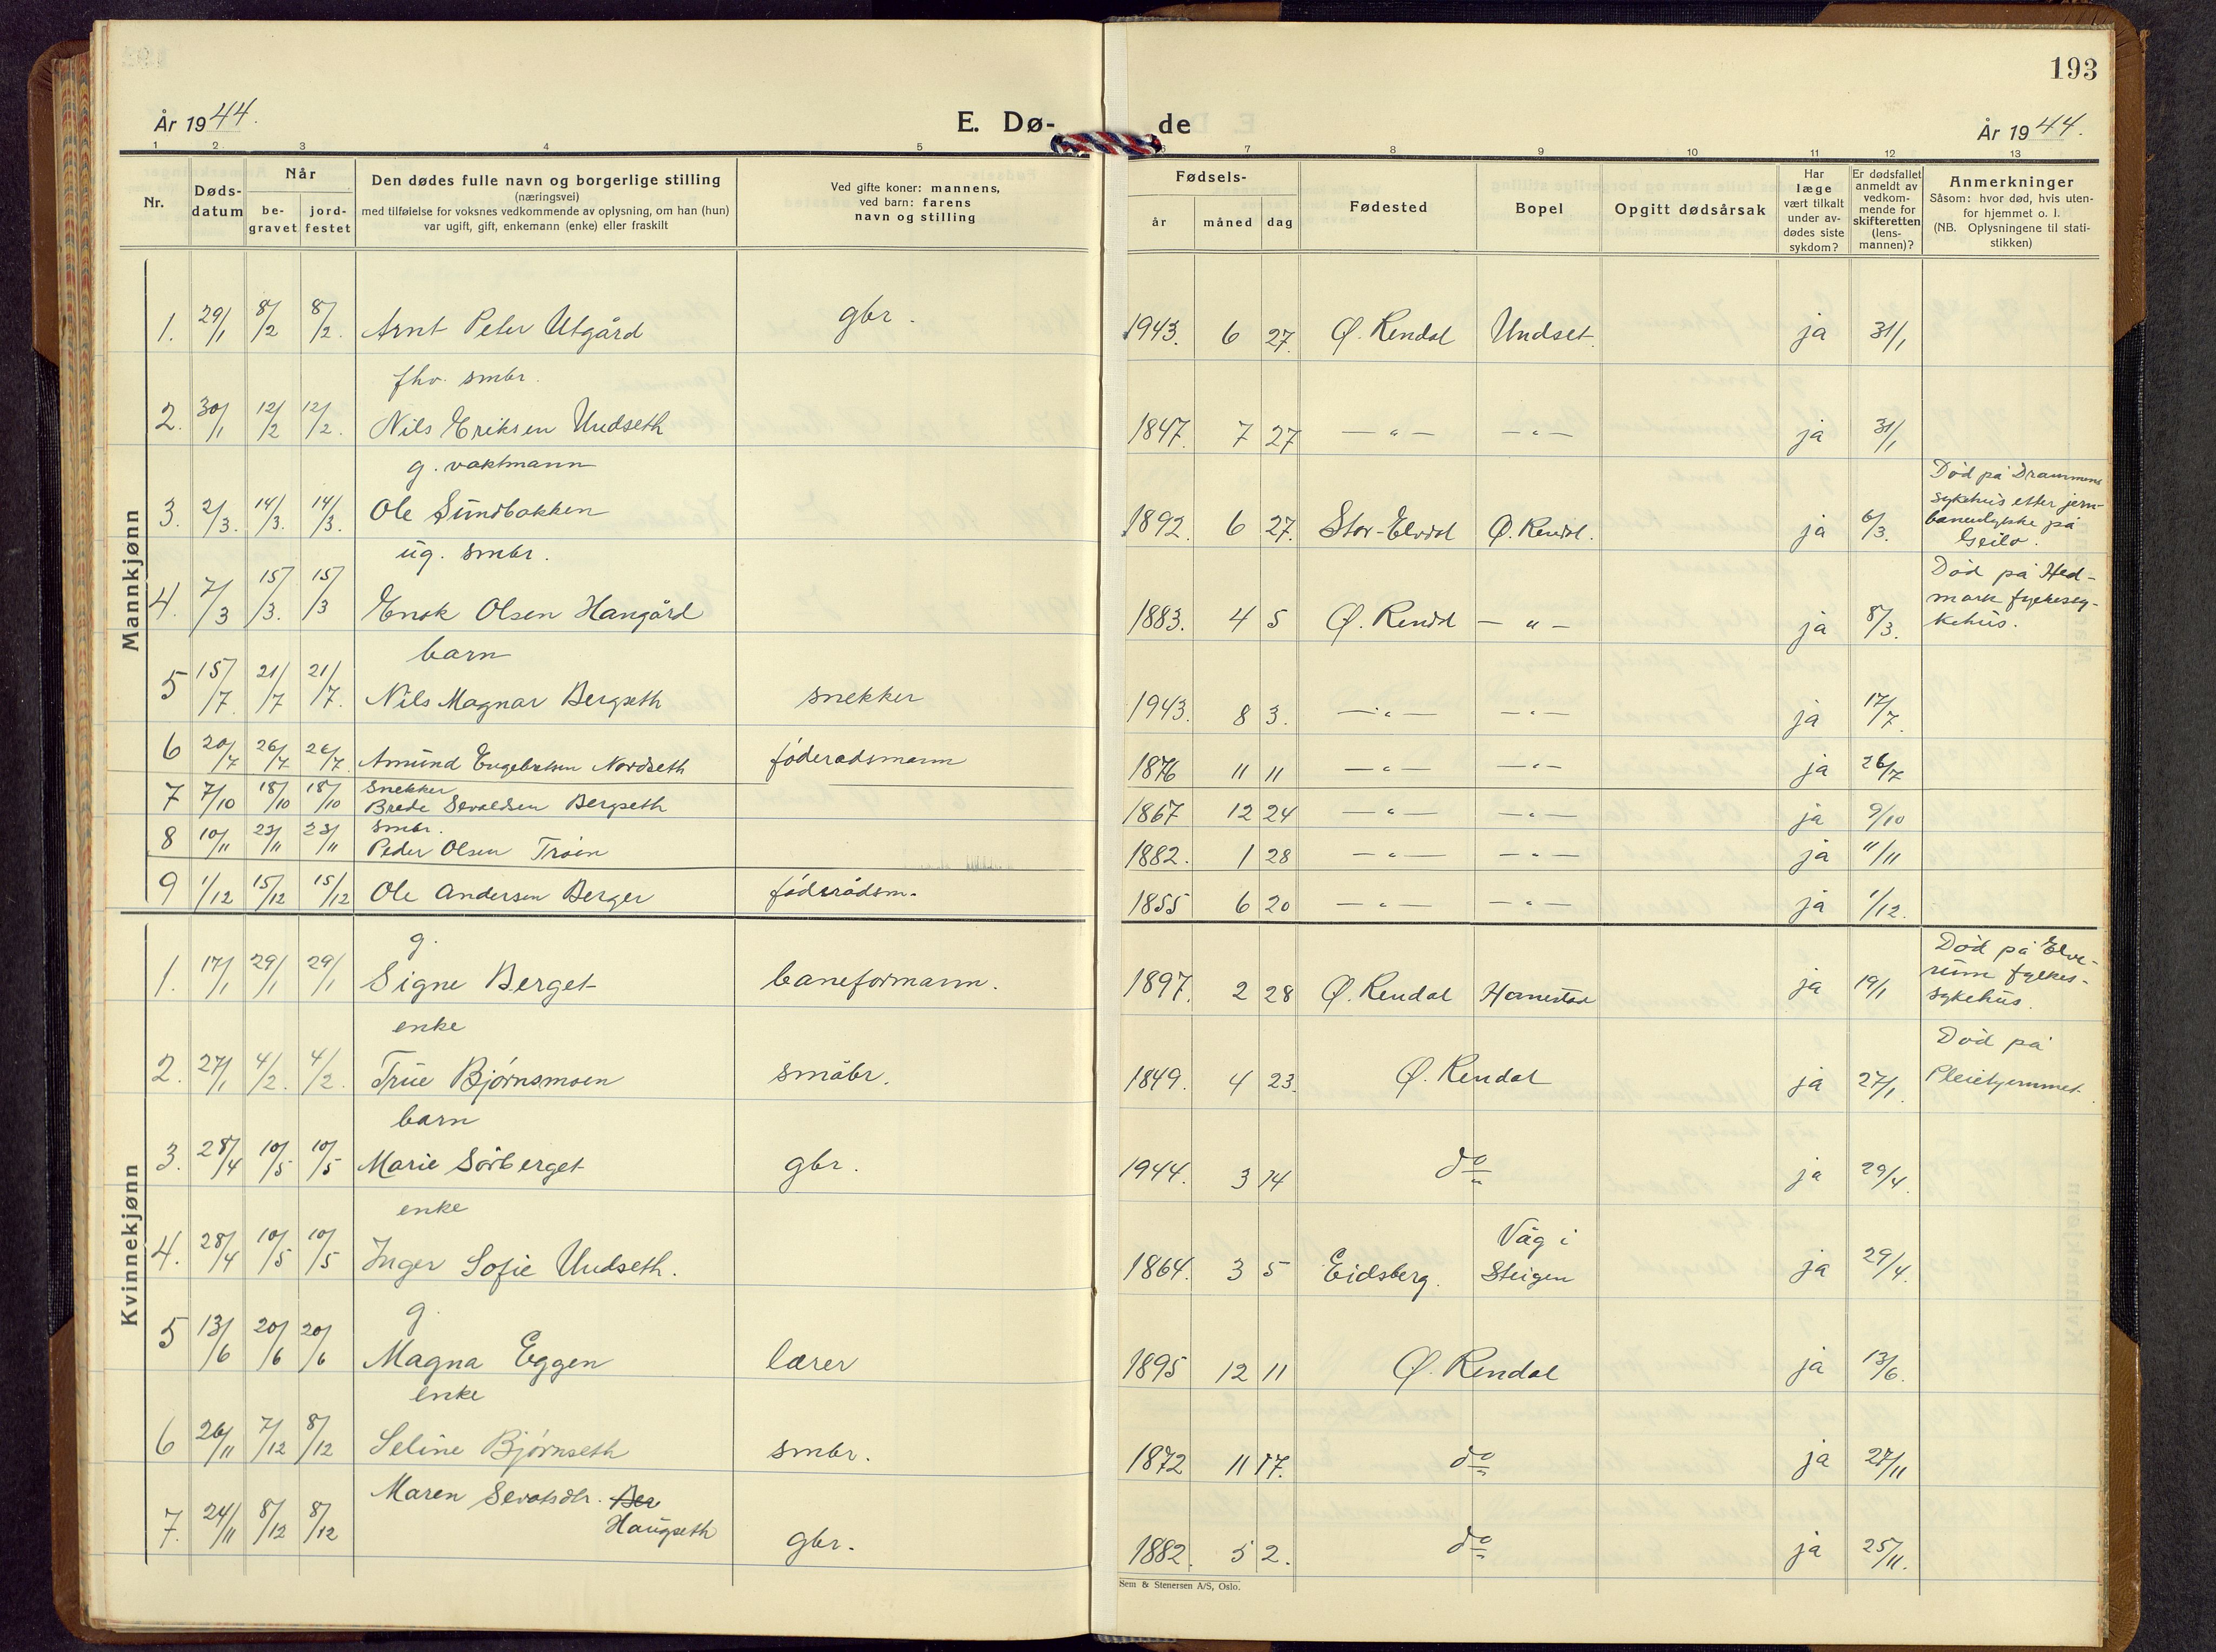 193
År 1944.
E. Dø-
de
År 1944.
1 2 3 4 5 6 7 8 9 10 11 12 13
Nr.
Døds-
datum
Når
be-
gravet
jord-
festet
Den dødes fulle navn og borgerlige stilling
(næringsvei)
med tilføielse for voksnes vedkommende av oplysning, om han (hun)
var ugift, gift, enkemann (enke) eller fraskilt
Ved gifte koner: mannens,
ved barn: farens
navn og stilling
Fødsels-
år måned dag
Fødested
Bopel
Opgitt dødsårsak
Har
læge
vært tilkalt
under av-
dødes siste
sykdom?
Er dødsfallet
anmeldt av
vedkom-
mende for
skifteretten
(lens-
mannen)?
Anmerkninger
Såsom: hvor død, hvis uten-
for hjemmet o. l.
(NB. Oplysningene til stati-
stikken)
Mannkjønn
1. 29/1 8/2 8/2. Arnt Peter Utgård gbr. 1943. 6 27. Ø. Rendal Undset. ja 31/1
fhv. smbr.
2. 30/1 12/2 12/2. Nils Eriksen Undseth 1847. 7 27 — " — — " — ja 31/1
g. vaktmann
3. 2/3. 14/3. 14/3. Ole Sundbakken 1892. 6 27. Stor-Elvdal Ø. Rendal. ja 6/3.
Død på Drammens
sykehus etter jern-
baneulykke på
Geilo.
ug. smbr.
4. 7/3 15/3. 15/3 Enok Olsen Hangård 1883. 4 5 Ø. Rendal — " — ja 8/3.
Død på Hed-
mark fylkessy-
kehus.
barn
5 15/7. 21/7 21/7. Nils Magnar Bergseth snekker 1943. 8 3. — " — — " — ja 17/7.
6 20/7 26/7 26/7. Amund Engebretsen Nordseth føderadsmann 1876 11 11 — " — — " — ja 26/7
snekker
7 7/10 18/10 18/10 Brede Sevaldsen Bergseth 1867 12 24 — " — — " — ja 9/10
smbr.
8 10/11 23/11 23/11 Peder Olsen Trøen 1882. 1 28 — " — — " — ja 11/11
9 1/12 15/12 15/12 Ole Andersen Berger føderådsm. 1855 6 20 — " — — " — ja 1/12.
Kvinnekjønn
g.
1. 17/1 29/1 29/1 Signe Berget baneformann. 1897. 2 28 Ø. Rendal Hanestad ja 19/1
Død på Elve-
rum fylkes-
sykehus.
enke
2. 27/1 4/2. 4/2. True Bjørnsmoen småbr. 1849. 4 23. Ø. Rendal ja 27/1.
Død på
Pleiehjemmet.
barn
3. 28/4 10/5 10/5 Marie Sørberget gbr. 1944. 3 14 do ja 29/4.
enke
4. 28/4 10/5 10/5 Inger Sofie Undseth. 1864. 3 5 Eidsberg. Våg i
Steigen ja 29/4.
g.
5 13/6 20/6 20/6 Magna Eggen lærer 1895 12 11 Ø. Rendal ja 13/6.
enke
6 26/11 7/12 8/12 Seline Bjørnseth smbr. 1872 11 17. do ja 27/11
7. 24/11 8/12 8/12 Maren Sevatsdtr. Ber
Haugseth gbr. 1882. 5 2. do ja 25/11.
Sem & Stenersen A/S, Oslo.